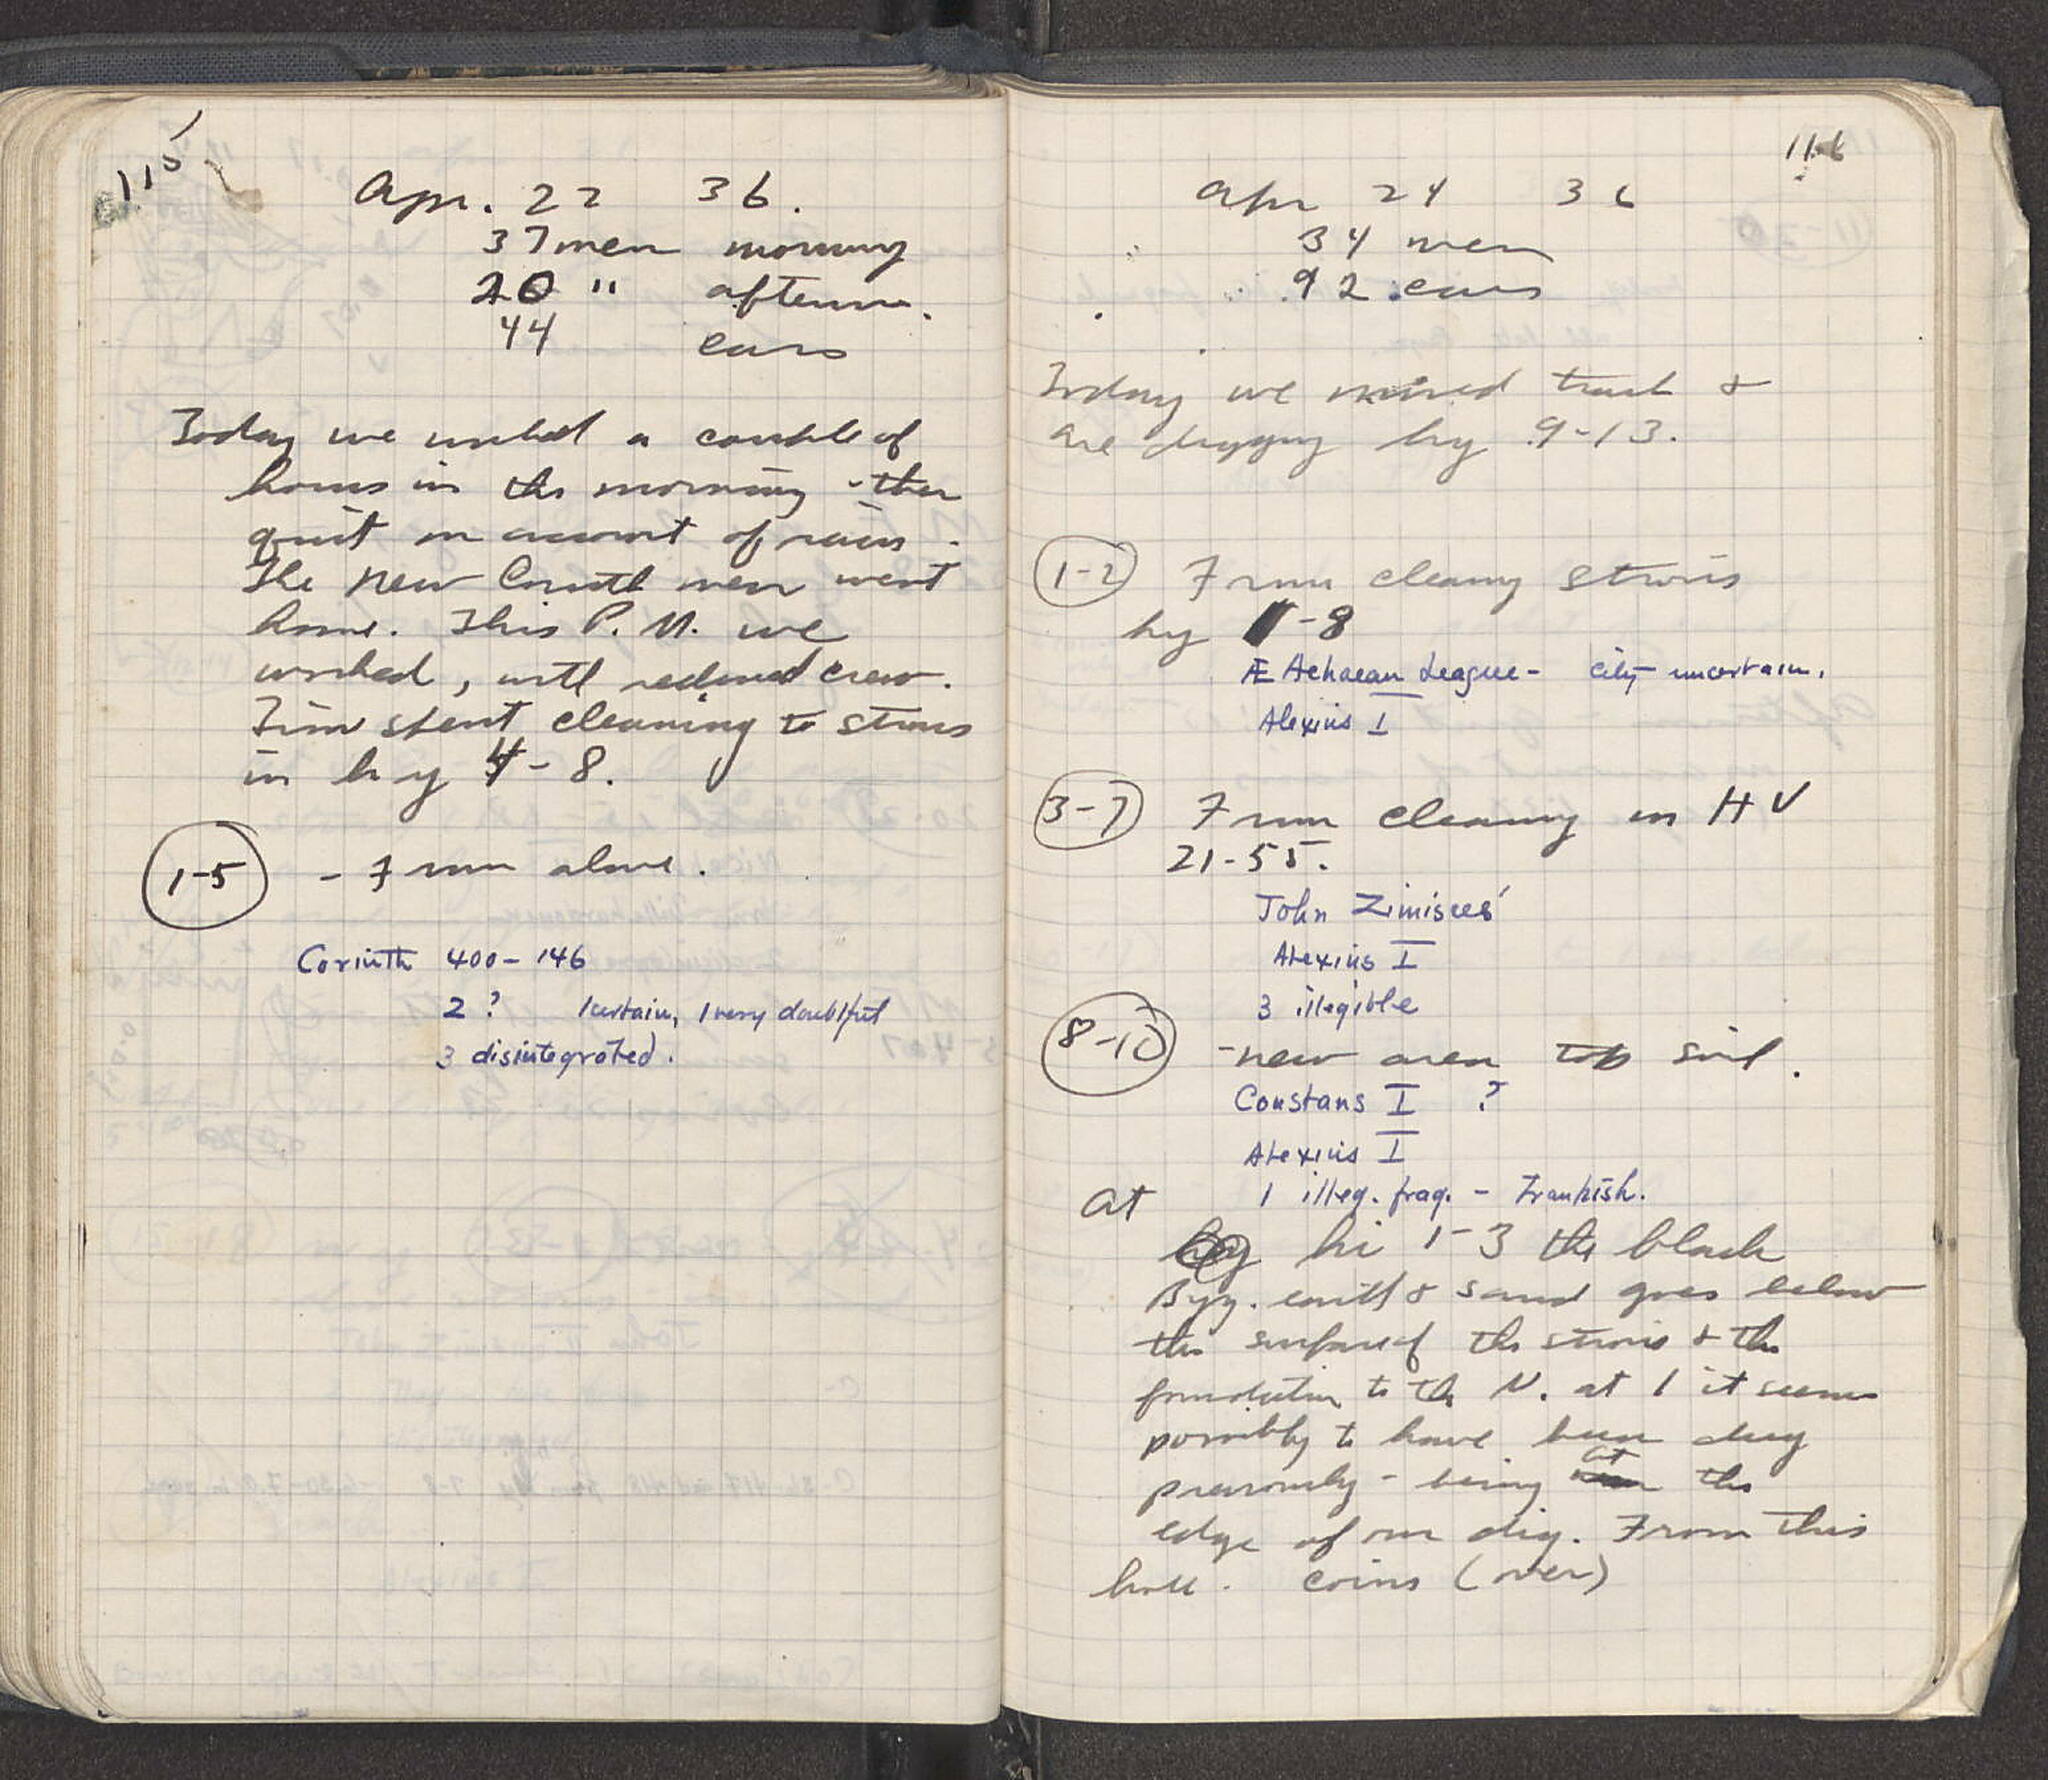 115
Apr. 22 36.
37 men morning
20 " afternn.
44 cars
Today we worked a couple of
hours in the morning - then
quit on account of rain.
The New Corinth men went
home. This P.M. we
worked, with reduced crew.
Time spent cleaning to stereo
in hy 4-8.
1-5 - From above.
Corinth 400-146
2 ? 1 certain, 1 very doubtful
3 disintegrated.
116
Apr 24 36
34 men
92 cars
Today we moved track &
are digging hy 9-13.
1-2 From cleaning
hy 1-8
Æ Achaean League - city uncertain.
Alexius I
3-7 From cleaning in HV
21-55.
John Zimisces
Alexius I
3 illegible
8-10 - new area top soil.
Constans I ?
Alexius I
1 illeg. frag. - Frankish.
at
hi 1-3 the black
Byz. earth & sand goes below
the surface of the & the
foundation to the N. at 1 it seems
possibly to have been dug
previously - being at the
edge of our dig. From this
hole. coins (over)